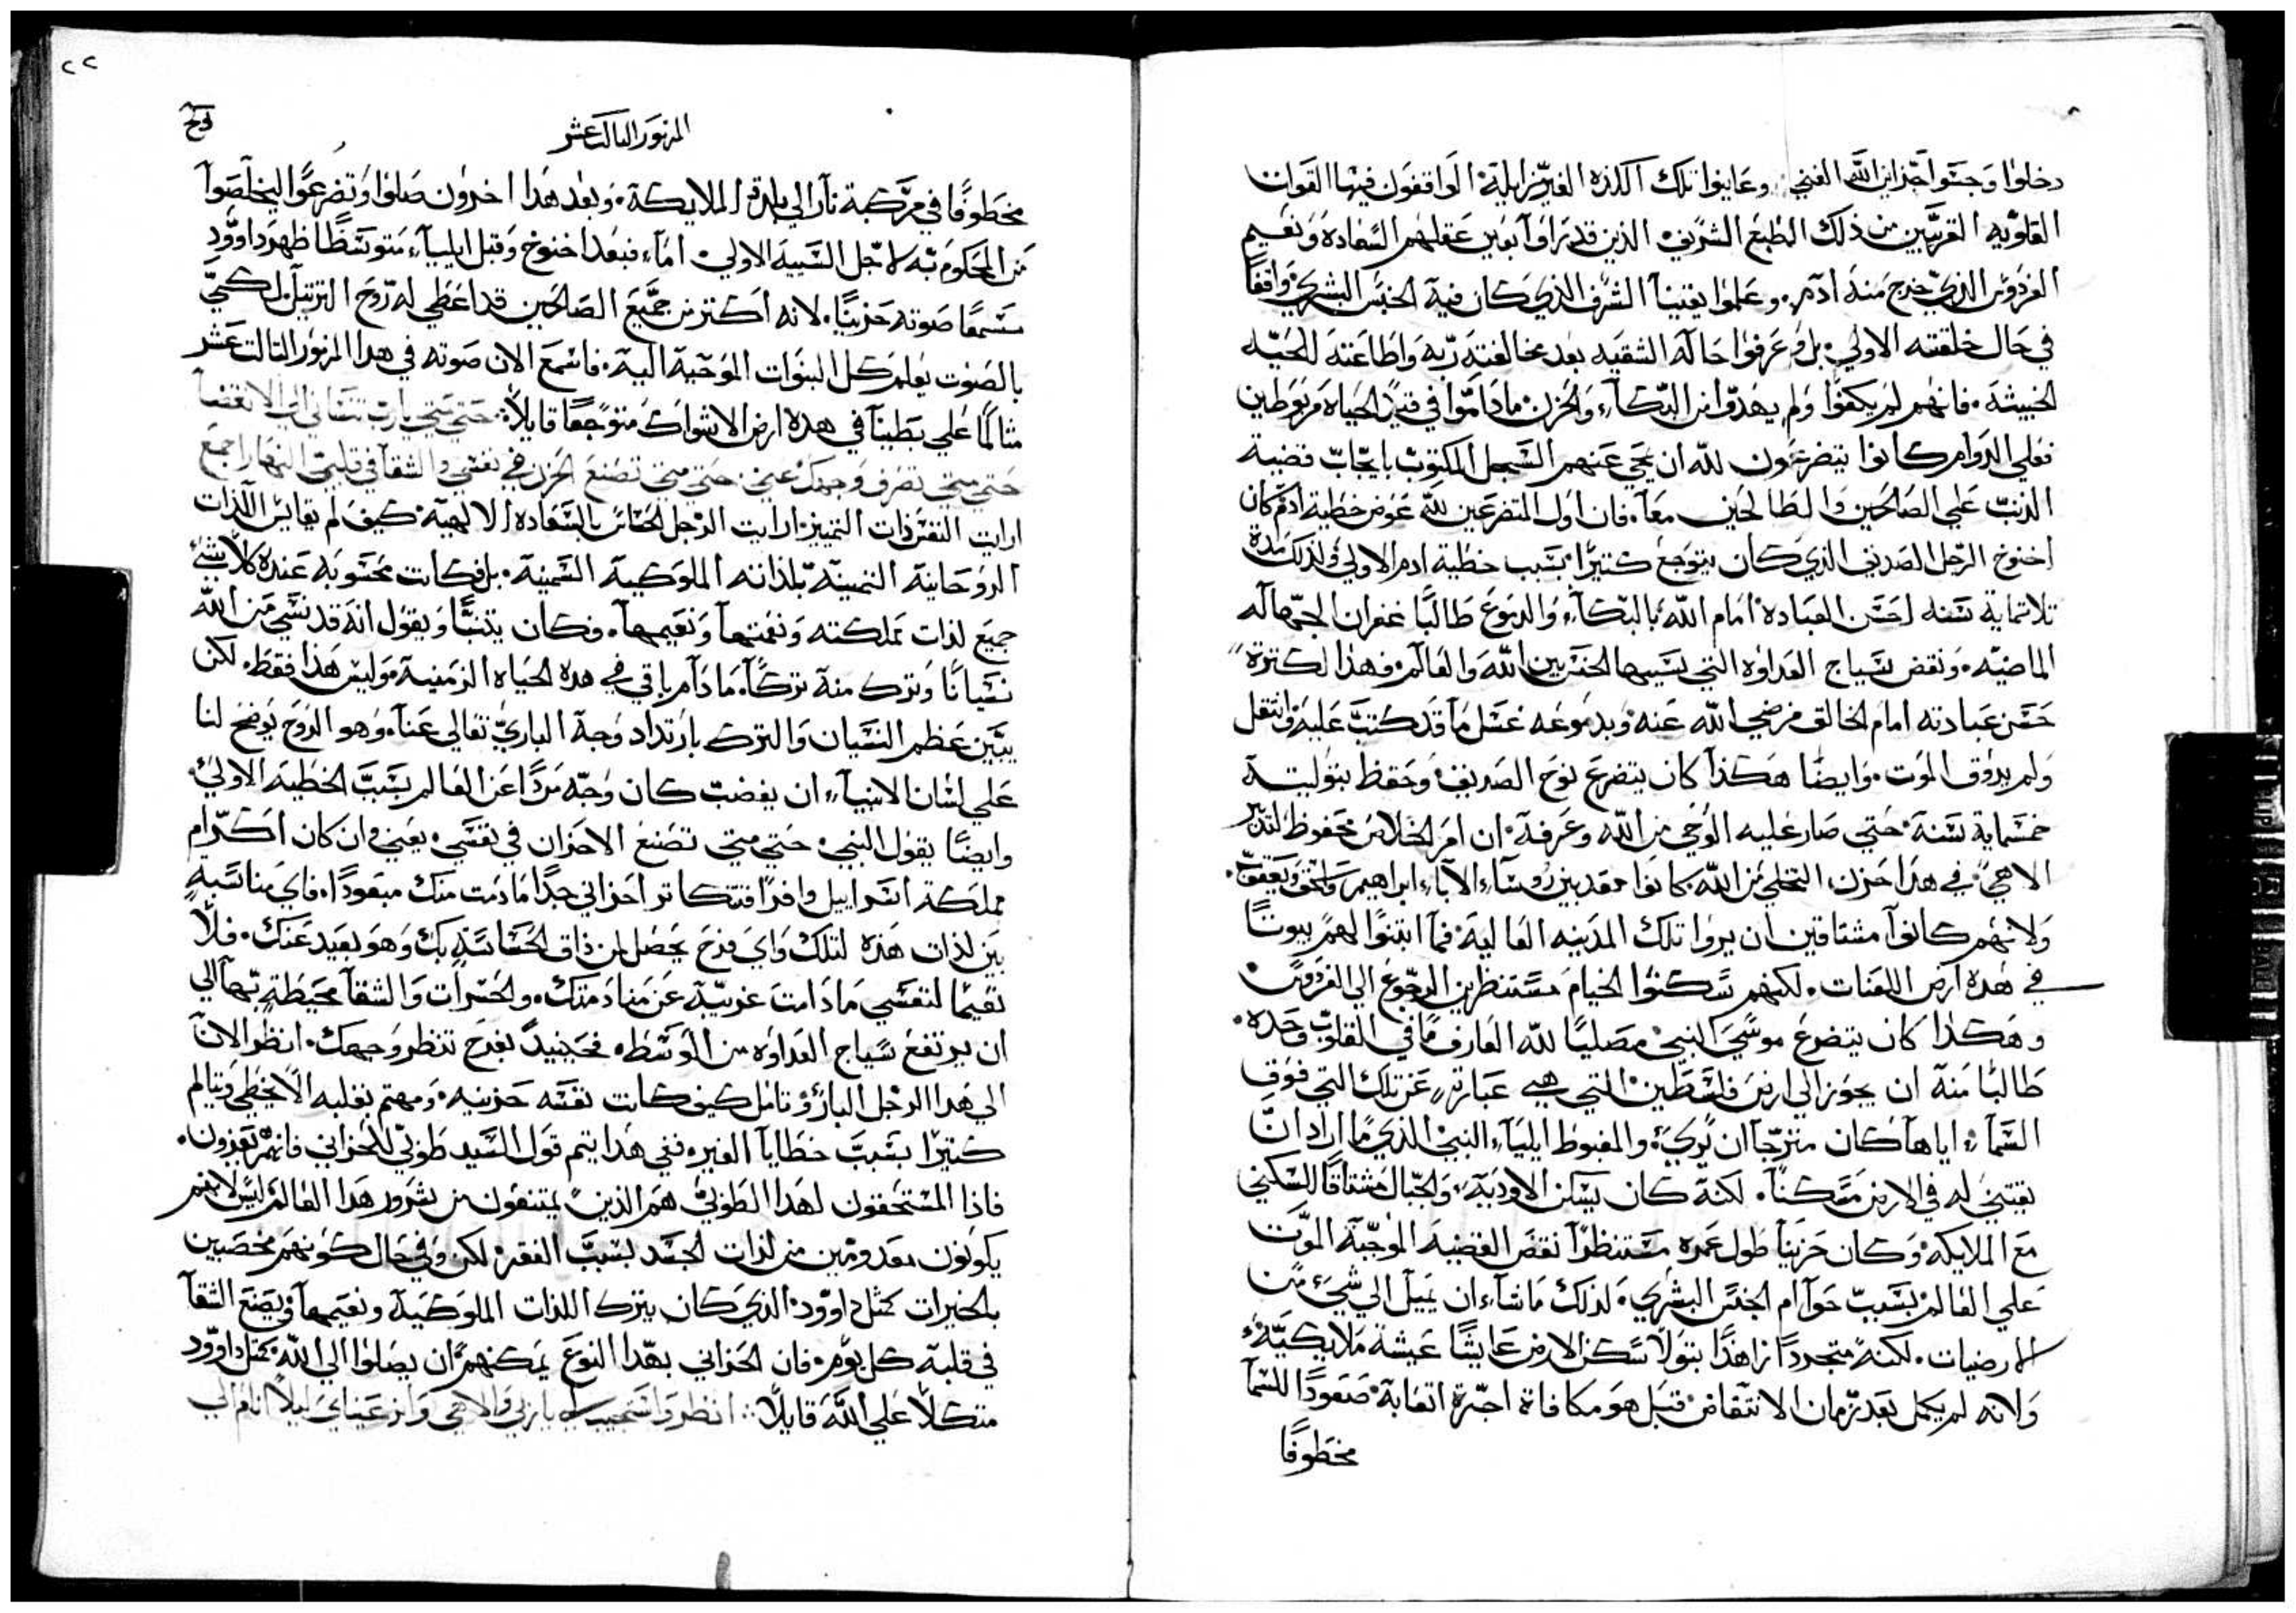 دخلوا وجسوا خزاين الله الغني وعاينوا تلك اللذه الغير زايلة الواقفون فيها القوات
العلويه القريبين من ذلك الطبع الشريف الذين قد نراوا بعين عقلهم السعاده ونعيم
الفردوس الذي خرج منه ادم. وعلموا يقيناً الشرف الذي كان فيه الجنس البشري واقفاً
في حال خلقته الاولي بل وعرفوا حالة الشقيه بعد مخالفته ربه واطاعته للحيه
الخبيثة. فانهم لم يكفوا ولم يهدوا من البكاء والحزن ما داموا في قيد الحياه مربوطين
فعلي الدوام كانوا يتضرعون لله ان يمحي عنهم السجل المكتوب بايجاب قضية
الذنب علي الصالحين والطالحين معاً. فان اول المتضرعين لله عوض خطية ادم كان
اخنوخ الرجل الصديق الذي كان يتوجع كثيراً بسبب خطية ادم الاولي ولذلك مدة
تلاتماية سنه احسن العباده امام الله بالبكاء والدموع طالباً غفران الجهاله
الماضيه. ونقض سياج العداوه التي بسببها الحسر بين الله والعالم. فهذا لكترة
حسن عبادته امام الخالق فرضي الله عنه وبدموعه غسل ما قد كتب عليه وانتقل
ولم يذوق الموت. وايضاً هكذا كان يتضرع نوح الصديق وحفظ بتوليته
خمسماية سنة حتي صار عليه الوحي من الله وعرفه ان امر الخلاص محفوظ للتدبير
الالاهي في هذا حزن التخلي من الله كانوا معذبين روساء الاباء ابراهيم واسحق ويعقوب.
ولانهم كانوا مشتاقين ان يروا تلك المدينه العاليه فما ابتنوا لهم بيوتاً
في هذه ارض اللعنات. لكنهم سكنوا الخيام مستنظرين الرجوع الي الفردوس
وهكذا كان يتضرع موسي النبي مصلياً لله العارف ما في القلوب وحده.
طالباً منه ان يجوز الي ارض فلسطين التي هي عبارة عن تلك التي فوق
السماء اياها كان مترجاً ان يري. والمغبوط ايلياء النبي الذي ما اراد ان
يقتني له في الارض مسكناً. لكنه كان يسكن الاودية والجبال مشتاقاً للسكني
مع الملايكه وكان حزيناً طول عمره مستنظراً نقض القضيه الموجبة الموت
علي العالم بسبب حوا ام الجنس البشري. لذلك ما شاء ان يميل الي شيء من
الارضيات. لكنه متجرداً زاهداً بتولاً سكن الارض عايشاً عيشة ملايكيه
ولانه لم يكمل بعد زمان الانتقاض قبل هو مكافاة اجرة اتعابه صعوداً للسما
مخطوفا
٢٢
المزمور التالت عشر
مخطوفاً في مركبة نار الي بلدة الملايكة. وبعد هذا اخرون صلوا وتضرعوا ليخلصوا
من المحكوم به لاجل السبيه الاولي اماء فبعد اخنوخ وقبل ايلياء متوسطاً ظهر داوود
مسمعاً صوته حزيناً. لانه اكتر من جميع الصالحين قد اعطي له روح الترتيل لكي
بالصوت يعلم كل البنوات الموحية اليه. فاسمع الان صوته في هدا المزمور التالت عشر
متالماً علي بطينا في هده ارض الاشواك متوجعاً قايلاً: حتي متي يارب تنساني الي الانقضا
حتي متي تصرف وجهك عني. حتي متي تصنع الحزن في نفسي والشقا في قلبي النهار اجمع
ارايت النفس ذات التمييز ارايت الرجل الحساس بالسعاده الالهية كيف لم يقايس اللذات
الروحانية التمينة بلذاته الملوكية السمينة. بل فكانت محسوبه عنده كلا شي
جميع لذات مملكته ونغمتها ونعيمها. وكان يتنبا ويقول انه قد نسي من الله
نسياناً وترك منه تركاً. ما دام باقي في هده الحياه الزمنية. وليس هذا فقط. لكن
يبين عظم النسيان والترك بارتداد وجه الباري تعالي عنا. وهو الروح يوضح لنا
علي لسان الانبياء ان بغضب كان وجه مرداً عن العالم بسبب الخطية الاولي.
وايضاً يقول النبي حتي متي تصنع الاحزان في نفسي يعني وان كان اكرام
مملكة اسراييل وافراً فتتكاتر احزاني جداً ما دمت منك مبعوداً. فاي مناسبة
بين لذات هذه لتلك واي فرح يحصل لمن ذاق الحساسة بك وهو بعيد عنك. فلا
نعيماً لنفسي ما دامت غريبة عن منادمتك. والحسرات والشقا محيطة بها الي
ان يرتفع سياج العداوه من الوسط. فحينيذ بفرح تنظر وجهك. انظر الان
الي هدا الرجل البار وتامل كيف كانت نفسه حزينه. ومهتم بقلبه الا يخطي ويتالم
كتيراً بسبب خطايا الغير. ففي هدا يتم قول السيد طوبي للحزاني فانهم يعزون.
فاذا المستحقون لهدا الطوبي هم الذين يمتنعون من شرور هدا العالم ليس لانهم
يكونون معدومين من لذات الجسد بسبب الفقر لكن وفي حال كونهم مخصبين
بالخيرات كمتل داوود الذي كان يترك اللذات الملوكية ونعيمها ويصنع الشقا
في قلبه كل يوم. فان الحزاني بهدا النوع يمكنهم ان يصلوا الي الله كمتل داوود
متكلاً علي الله قايلاً: انظر واستجيب لي يا ربي والاهي وانر عيناي ليلا انام الي